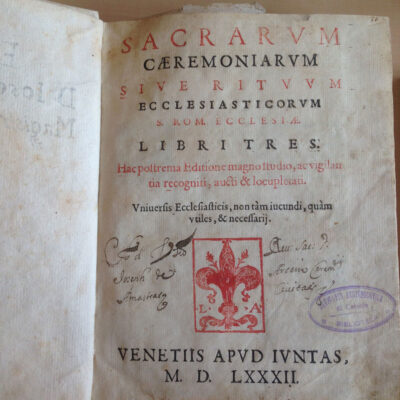 SACRARVM
CÆREMONIARVM
SIVE RITVVM
ECCLESIASTICORVM
S. ROM. ECCLESIÆ
LIBRI TRES.
Hac postrema Editione magno studio, ac vigilan
tia recogniti, aucti & locupletati.
Vniuersis Ecclesiasticis, non tàm iucundi, quàm
vtiles, & necessarij.
Joseph de
L A
VENETIIS APVD IVNTAS,
M. D. LXXXII.